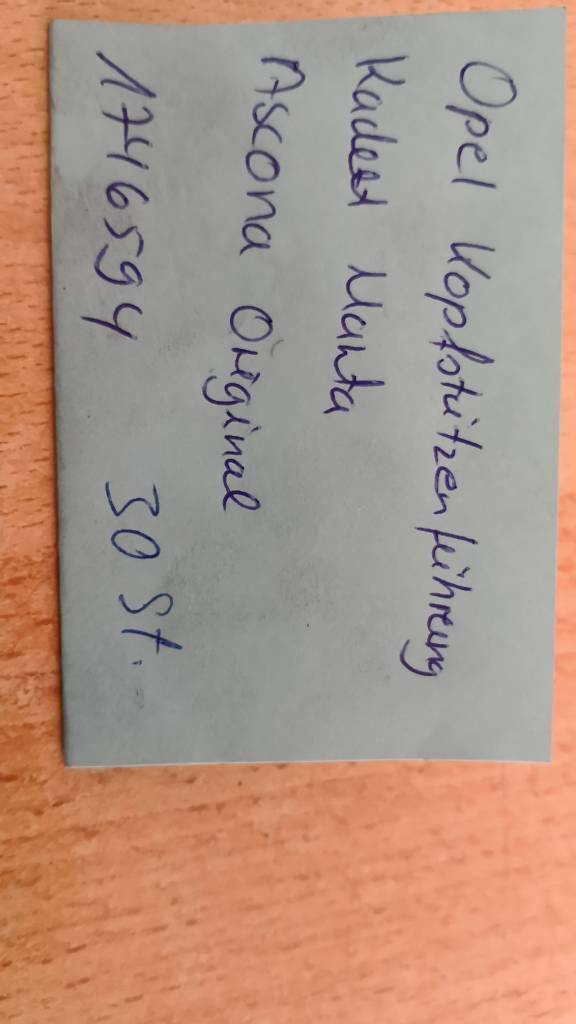 Opel Kopfstützenführung
Kadett Manta
Ascona Original
1746594 30 St.